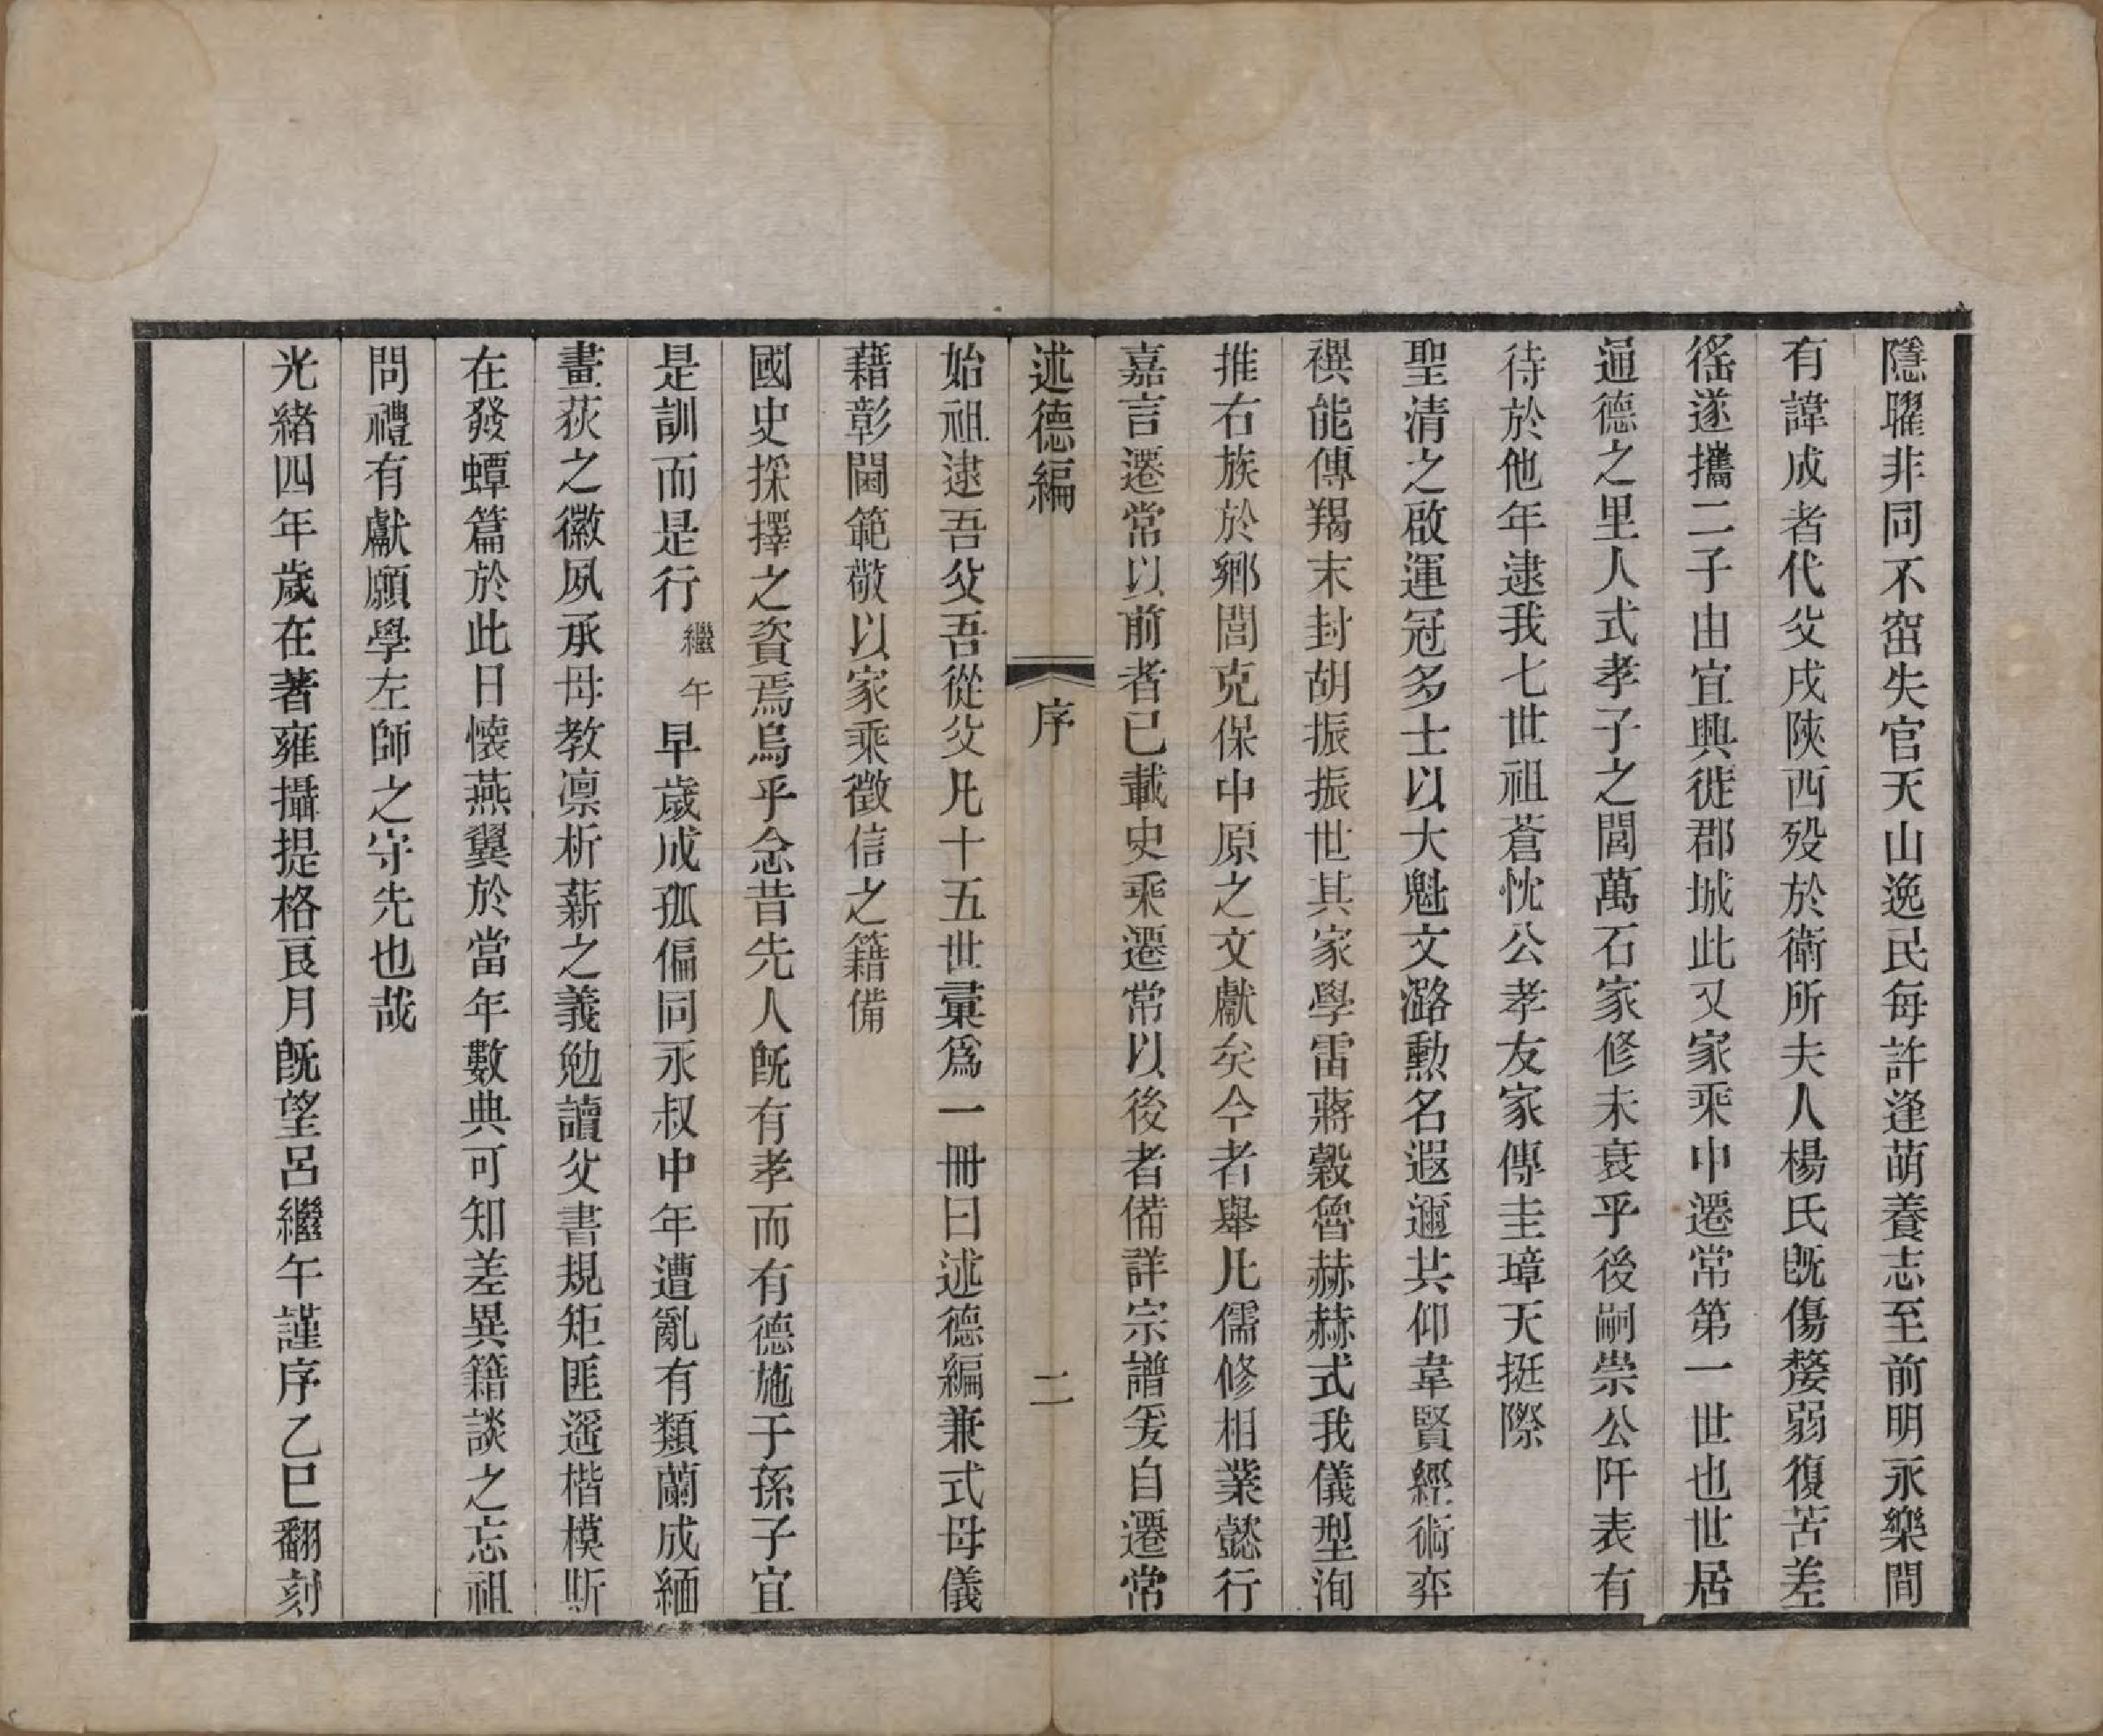 隱曜非同不窋失官天山逸民每許逢萌養志至前明永樂間
有諱成者代父戍陝西歿於衛所夫人楊氏旣傷嫠弱復苦差
徭遂攜二子由宜興徙郡城此又家乘中遷常第一世也世居
通德之里人式孝子之閭萬石家修未衰乎後嗣崇公阡表有
待於他年逮我七世祖蒼忱公孝友家傳圭璋天挺際
聖清之啟運冠多士以大魁文潞勲名遐邇共仰韋賢經術弈
禩能傳羯末封胡振振世其家學雷蔣穀魯赫赫式我儀型洵
推右族於鄉閭克保中原之文獻矣今者舉凡儒修相業懿行
嘉言遷常以前者已載史乘遷常以後者備詳宗譜爰自遷常
述德編 序 二
始祖逮吾父吾從父凡十五世彙爲一冊曰述德編兼式母儀
藉彰閫範敬以家乘徵信之籍備
國史採擇之資焉烏乎念昔先人旣有孝而有德施于孫子宜
是訓而是行繼午早歲成孤偏同永叔中年遭亂有類蘭成緬
畫荻之徽夙承母教凛析薪之義勉讀父書規矩匪遥楷模斯
在發蟫篇於此日懷燕翼於當年數典可知差異籍談之忘祖
問禮有獻願學左師之守先也哉
光緒四年歲在著雍攝提格艮月旣望呂繼午謹序乙巳翻刻